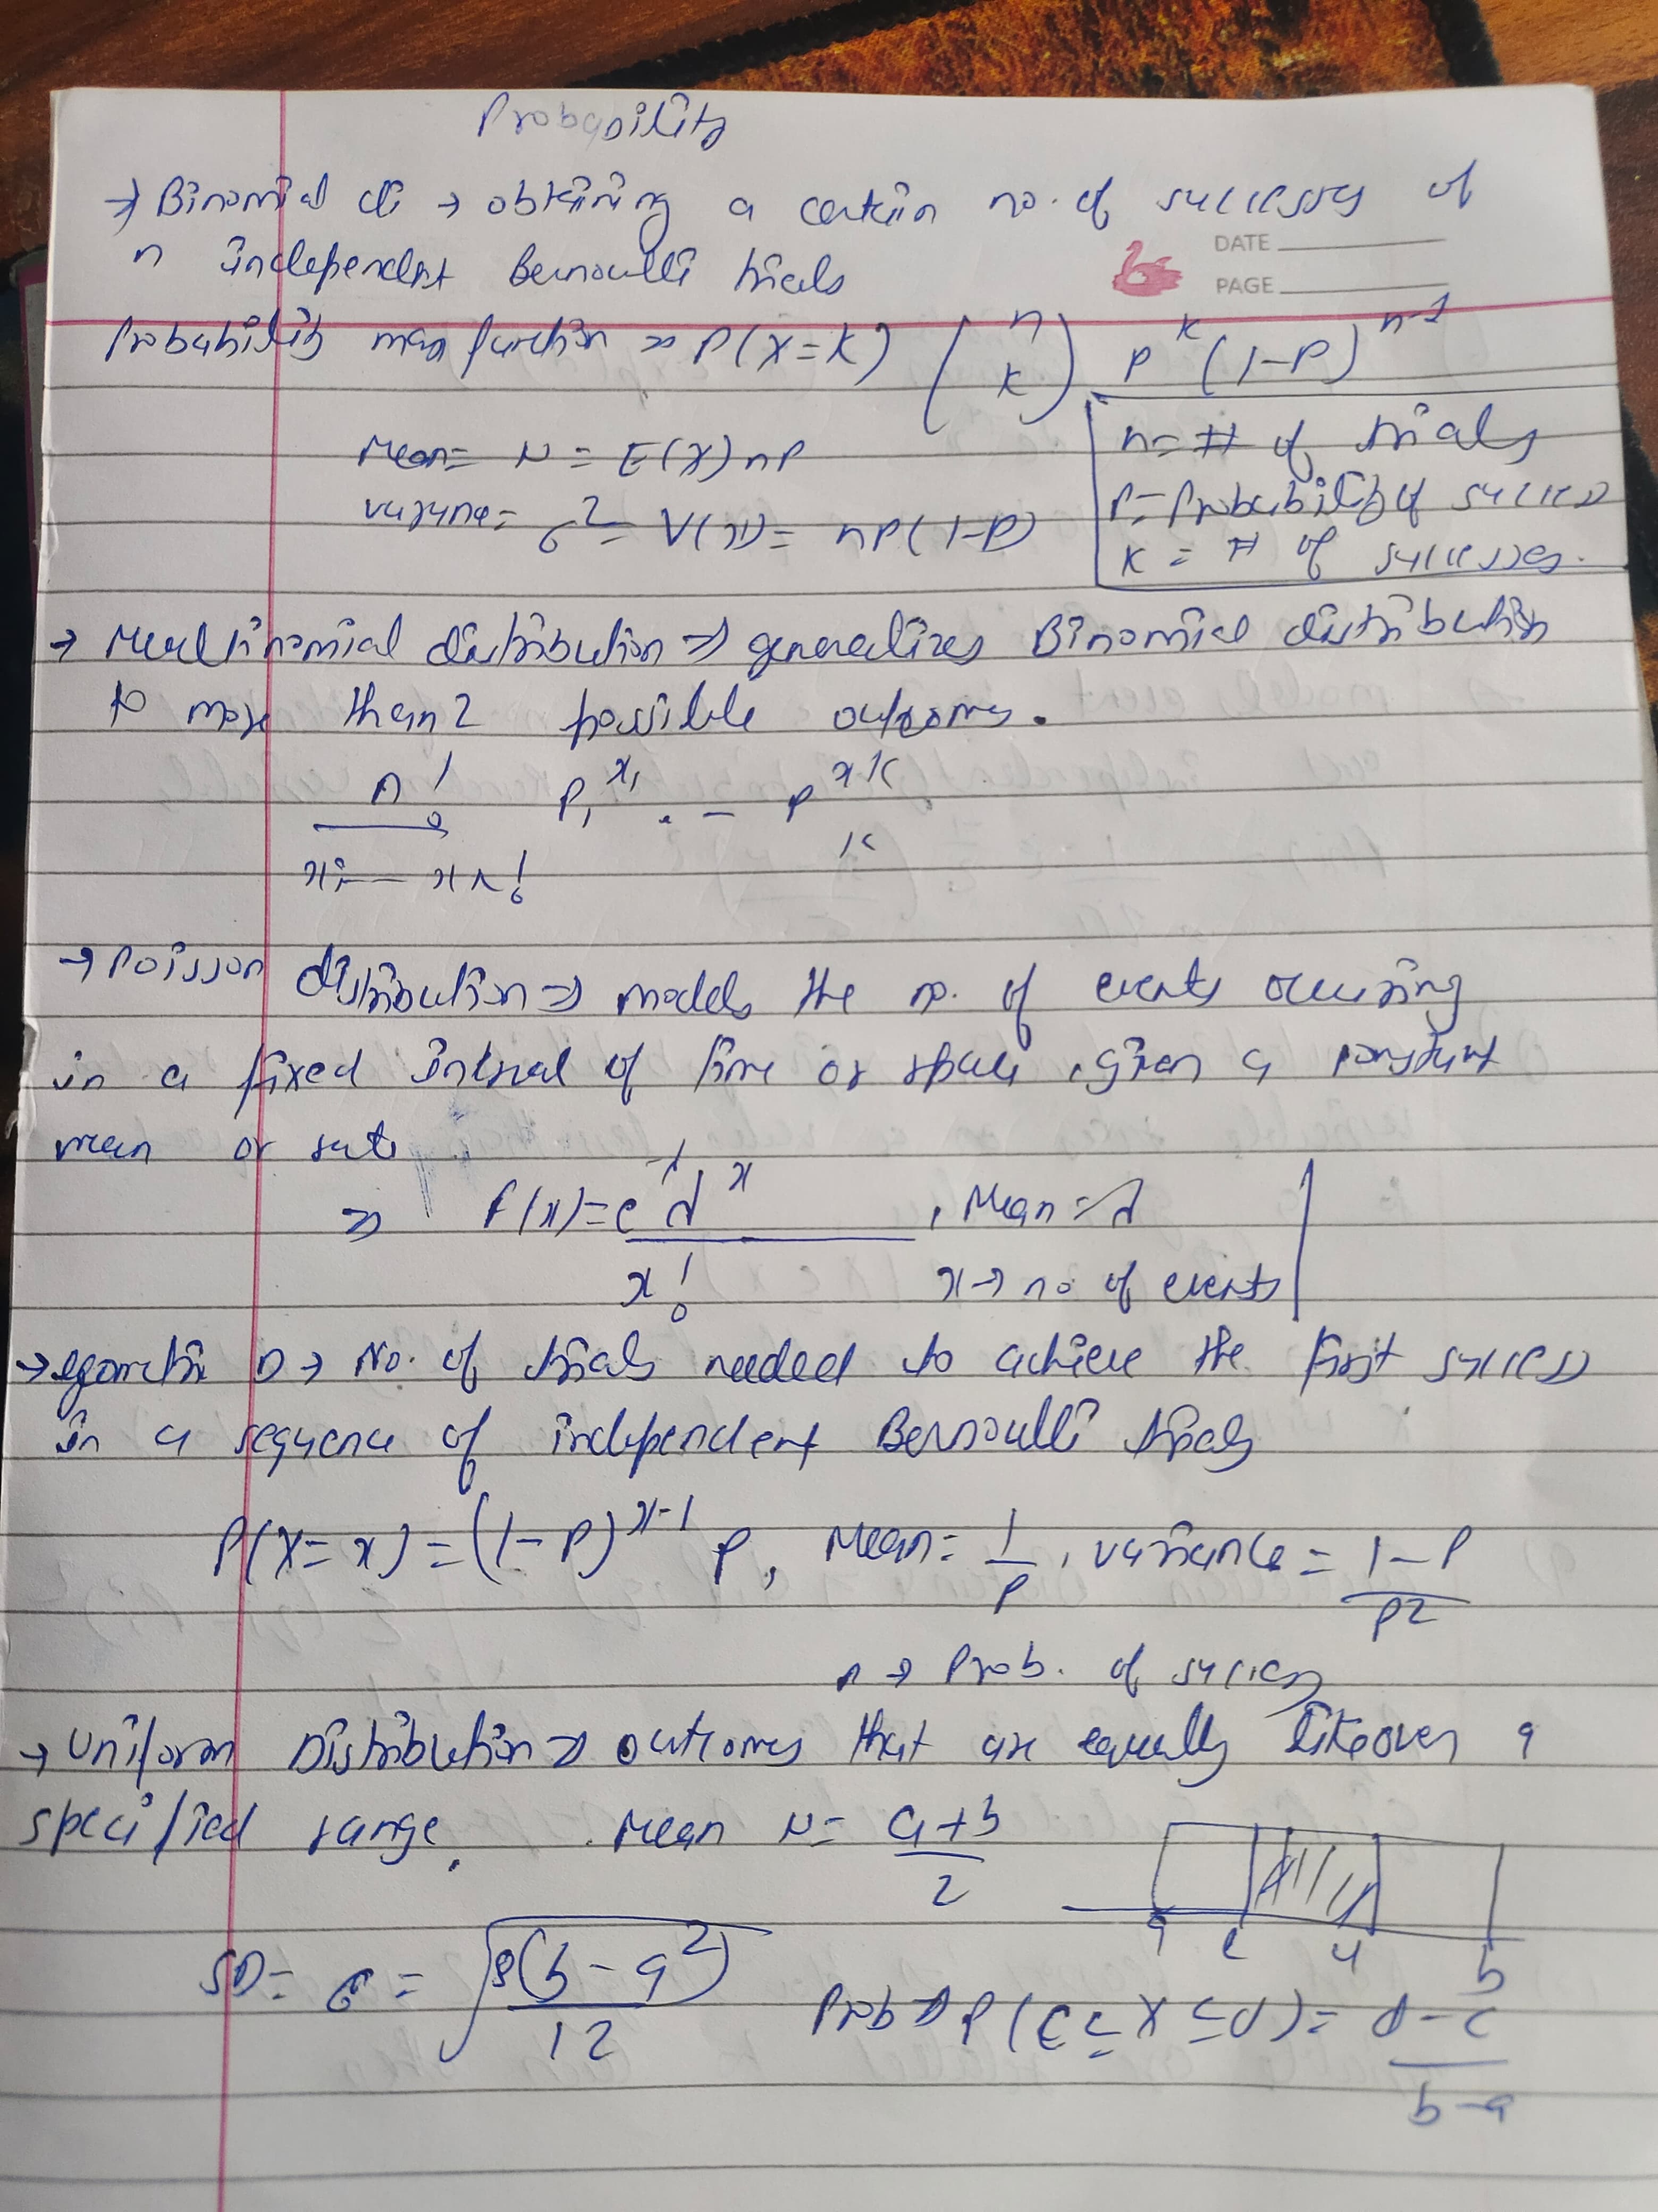 Probability
→ Binomial di → obtaining a certain no. of successes of
DATE
n independent Bernoulli trials
PAGE
Probability mass function => P(X=K) (n K) p^k (1-P)^n-1
n= # of trials
Mean= μ = E(X) nP
P= Probability of success
σ^2 = V(x) = nP(1-P)
K = # of successes.
→ Multinomial distribution => generalizes Binomial distribution
to more than 2 possible outcomes.
n! P1^x1 . - P^xK
K
→ Poisson distribution => models the no. of events occuring
in a fixed interval of time or space, given a constant
mean or rate
=> f(x) = e^-λ λ^x , Mean = λ
x! x → no. of events
D → No. of trials needed to achieve the first success
in a sequence of independent Bernoulli trials
P(X=x) = (1-P)^x-1 P, Mean = 1/P, variance = 1-P/P2
→ Prob. of success
→ Uniform Distribution => outcomes that are equally like over a
specified range. Mean μ = a+b/2
a b
SD = σ = √(b-a^2)/12
Prob → P(c ≤ X ≤ d) = d-c/b-a